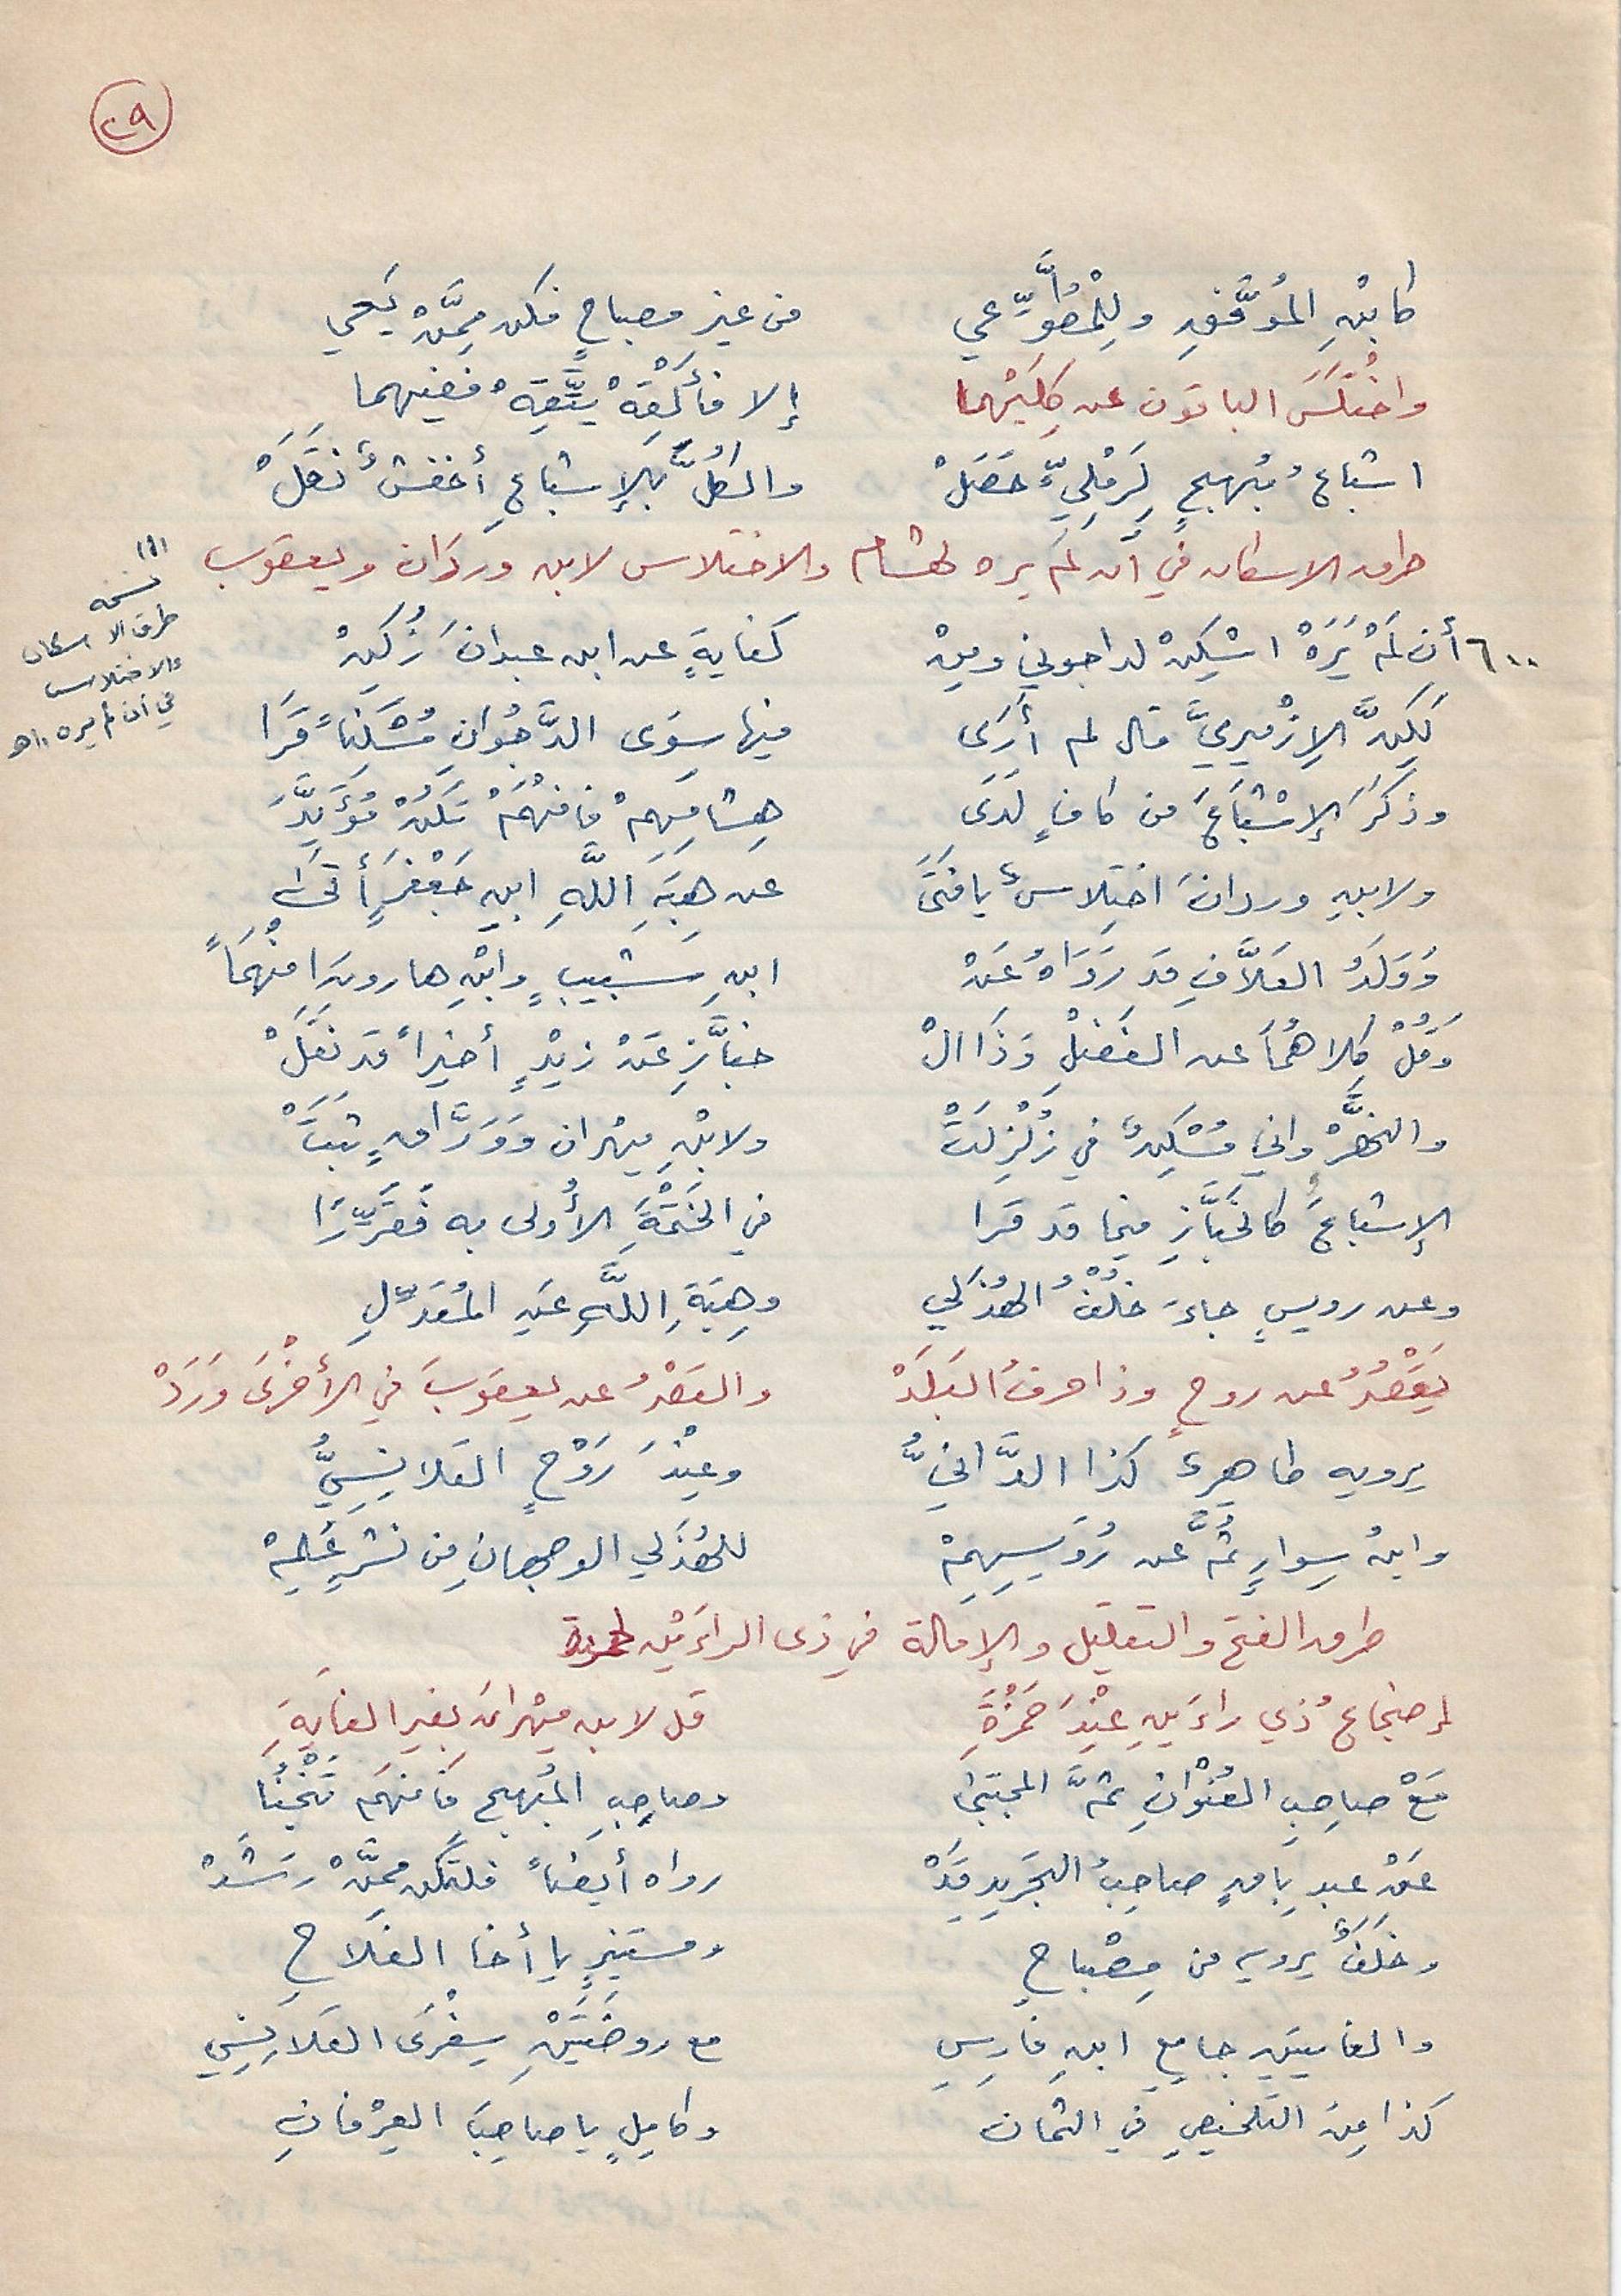 ٢٩
كابْنِ المُوَفَّقِ ولِلْمُطَّوِّعي من غير مصباحٍ فكن مِمَّنْ يَعي
واخْتَلَسَ الباقون عن كِلَيْهِما إلا فَأَلْقِهْ يَتَّقِهْ ففيهما
اشباعُ مُبْهِجٍ لِرَمْلِيٍّ حَصَلْ والكُلُّ بالإِشباعِ أخفشٌ نَقَلْ
طرق الاسكان في أن لم يره لهشام والاختلاس لابن وردان ويعقوب (١)
٦٠٠ أن لَمْ يَرَهْ اسْكِنْ لداجوني ومِنْ كفايةٍ عن ابن عبدانَ زُكِنْ
لَكِنَّ الإِزْمِيرِيَّ قال لم أَرَى فيها سِوَى الدَّاجُوانِ مُسْكِناً قَرَا
وذَكَرَ الإِشْبَاعَ من كافٍ لَدَى هِشامِهِمْ فَافْهَمْ تَكُنْ مُؤَيَّدَ
ولابنِ وردانَ اختِلاسٌ يا فَتَى عن هِبَةِ اللَّهِ ابنِ جَعْفَرٍ أَتَى
وَوَلَدُ العَلَّافِ قد رَوَاهُ عَنْ ابنِ شَبِيبٍ وابْنِ هارونَ افْهَمَاً
وَقُلْ كِلاهُمَا عن الفَضْلِ وَذَا الْ خبَّازِ عَنْ زيْدٍ أخيراً قد نَقَلْ
والنَّهْرَواني مُسْكِنٌ في زُلْزِلَتْ ولابْنِ مِهْران وَوَرَّاقٍ ثَبَتْ
الإشباعَ كالخَبَّازِ فيما قد قَرا في الخَتْمَةِ الأُولى به فَقَرِّرَا
وعن رويسٍ جاءَ خُلْفُ الهُذَلي وهِبَةِ اللَّهِ عَنِ المُعَدِّلِ
يَقْصُرُ عن روحٍ وذا حرفُ البَلَدْ والقَصْرُ عن يعقوبَ في الأُخْرَى وَرَدْ
يرويه طاهِرٌ كذا الدَّانيُّ وعِنْدَ رَوْحٍ القَلانِسِيُّ
وابنُ سِوارٍ ثُمَّ عن رُوَيسِهِمْ للهُذَلي الوجهانِ مِن نشرٍ عُلِمْ
طرق الفتح والتقليل والإمالة في ذى الراءَيْن لحمزة
إضجاعُ ذي راءَينِ عِنْدَ حَمْزَةِ قل لابن مِهْرانَ بغير الغايَةِ
مَعْ صاحِبِ العُنْوانِ ثمَّ المجتبى وصاحِبِ المُبْهِجِ فافهَم تَنْجُبَا
عَن عبدِ باقٍ صاحِبُ التجريدِ قَدْ رواه أيضاً فلتكن مِمَّنْ رَشَدْ
وخَلَفٌ يرويه من مِصْباحِ ومستنيرٍ يا أخا الفلاحِ
والغايتينِ جامِعِ ابنِ فارِسِ مع روضَتَيْنِ سِفْرَى القَلانِسي
كذا مِنَ التلخيصِ في الثمان وكامِلٍ يا صاحِبَ العِرْفانِ
(١) نسخه
طرق الاسكان
والاختلاس
في أن لم يره ا.هـ